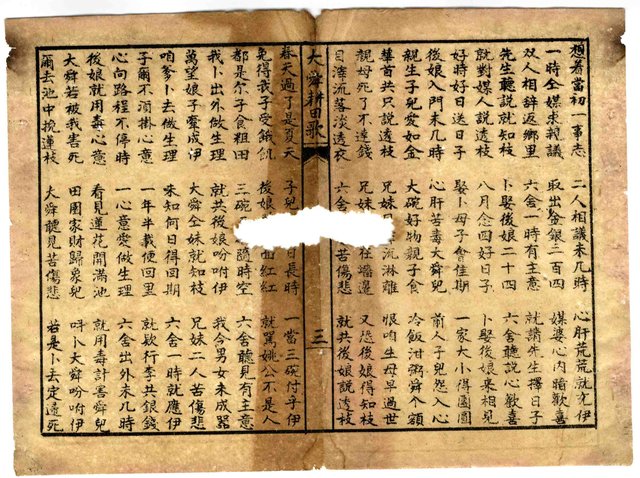 想着當初一事志 二人相議未几時 心肝荒荒就允伊
一時仝媒求親議 取出金銀二百四 媒婆心內暗歡喜
双人相辞返鄉里 六舍一時有主意 就請先生擇日子
先生聽說就知枝 卜娶後娘二十四 六舍聽說心歡喜
就對媒人說透枝 八月念四好日子 卜娶後娘來相見
好時好日送登起 娶卜母子會佳期 一家大小得團圓
後娘入門未几時 心肝苦毒大舜兒 前人子兒怨入心
親生子兒愛如金 大碗好物親子食 冷飯泔粥舜个額
華首共只說透枝 兄妹 流淋離 恨咱生母早過世
親母死了不達錢 兄妹 在墻邊 又恐後娘得知枝
目滓流落淡透衣 六舍 苦傷悲 就共後娘說透枝
大舜耕田歌 三
春天過了是夏天 子兒 日長時 一當三碗付乎伊
免得衣子受餓飢 後娘 面紅紅 就罵姚公不是人
都是尔子食粗田 三碗 隨時空 六舍聽見有主意
我卜出外做生理 就共後娘吩咐伊 我今男女未成器
萬望娘子牽成伊 大舜仝妹就知枝 兄妹二人苦傷悲
咱爹卜去做生理 未知何日得回期 六舍一時就應伊
子爾不須掛心意 一年半載便回里 就欵行李共銀錢
心向路程不停時 一心意愛做生理 六舍出外未几時
後娘就用毒心意 看見蓮花開滿池 就用毒計害舜兒
大舜若被我害死 田園家財歸衆兒 呌卜大舜吩咐伊
爾去池中挽蓮枝 大舜聽見苦傷悲 若是卜去定遭死